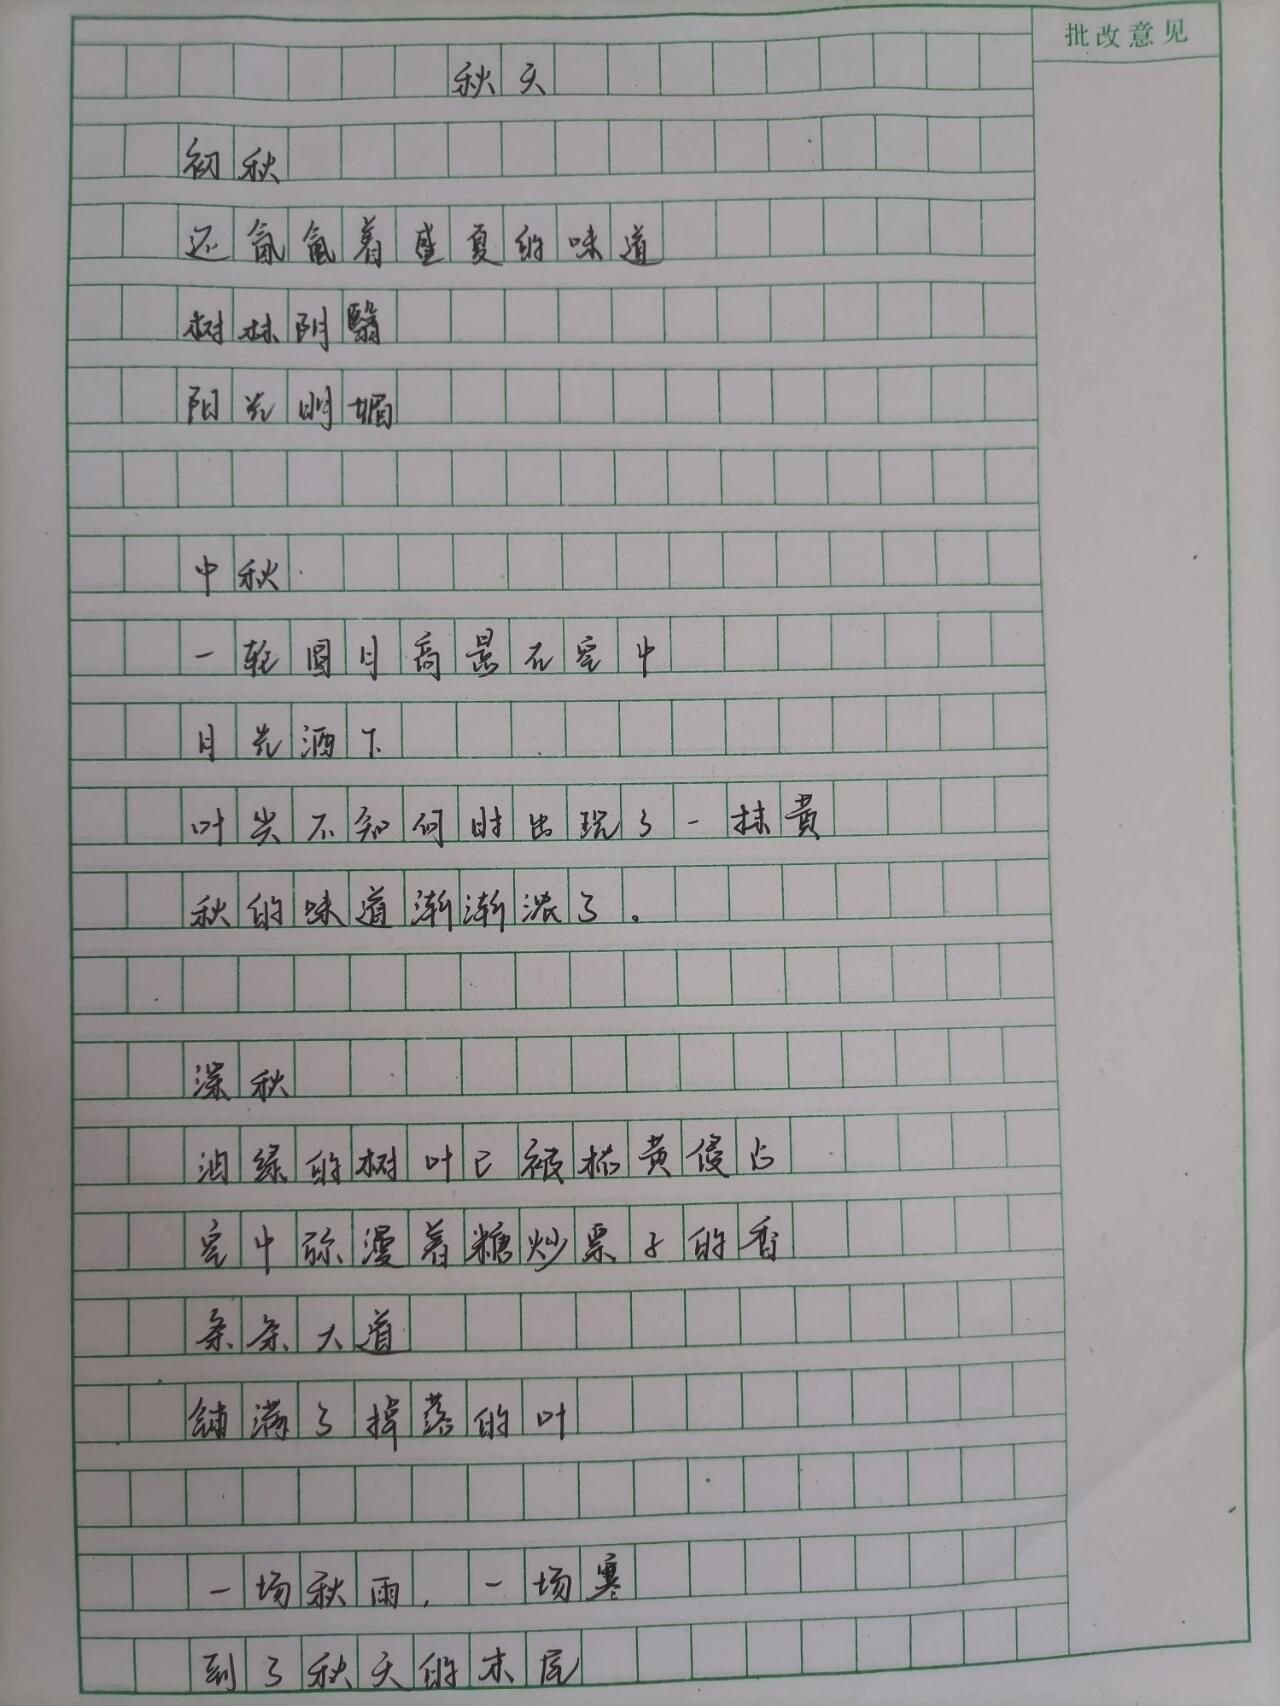 批改意见
秋天
初秋
还氤氲着盛夏的味道
树林阴翳
阳光明媚
中秋
一轮圆月高悬在空中
月光洒下
叶尖不知何时出现了一抹黄
秋的味道渐渐浓了。
深秋
油绿的树叶已被枯黄侵占
空中弥漫着糖炒栗子的香
条条大道
铺满了掉落的叶
一场秋雨，一场寒
到了秋天的末尾